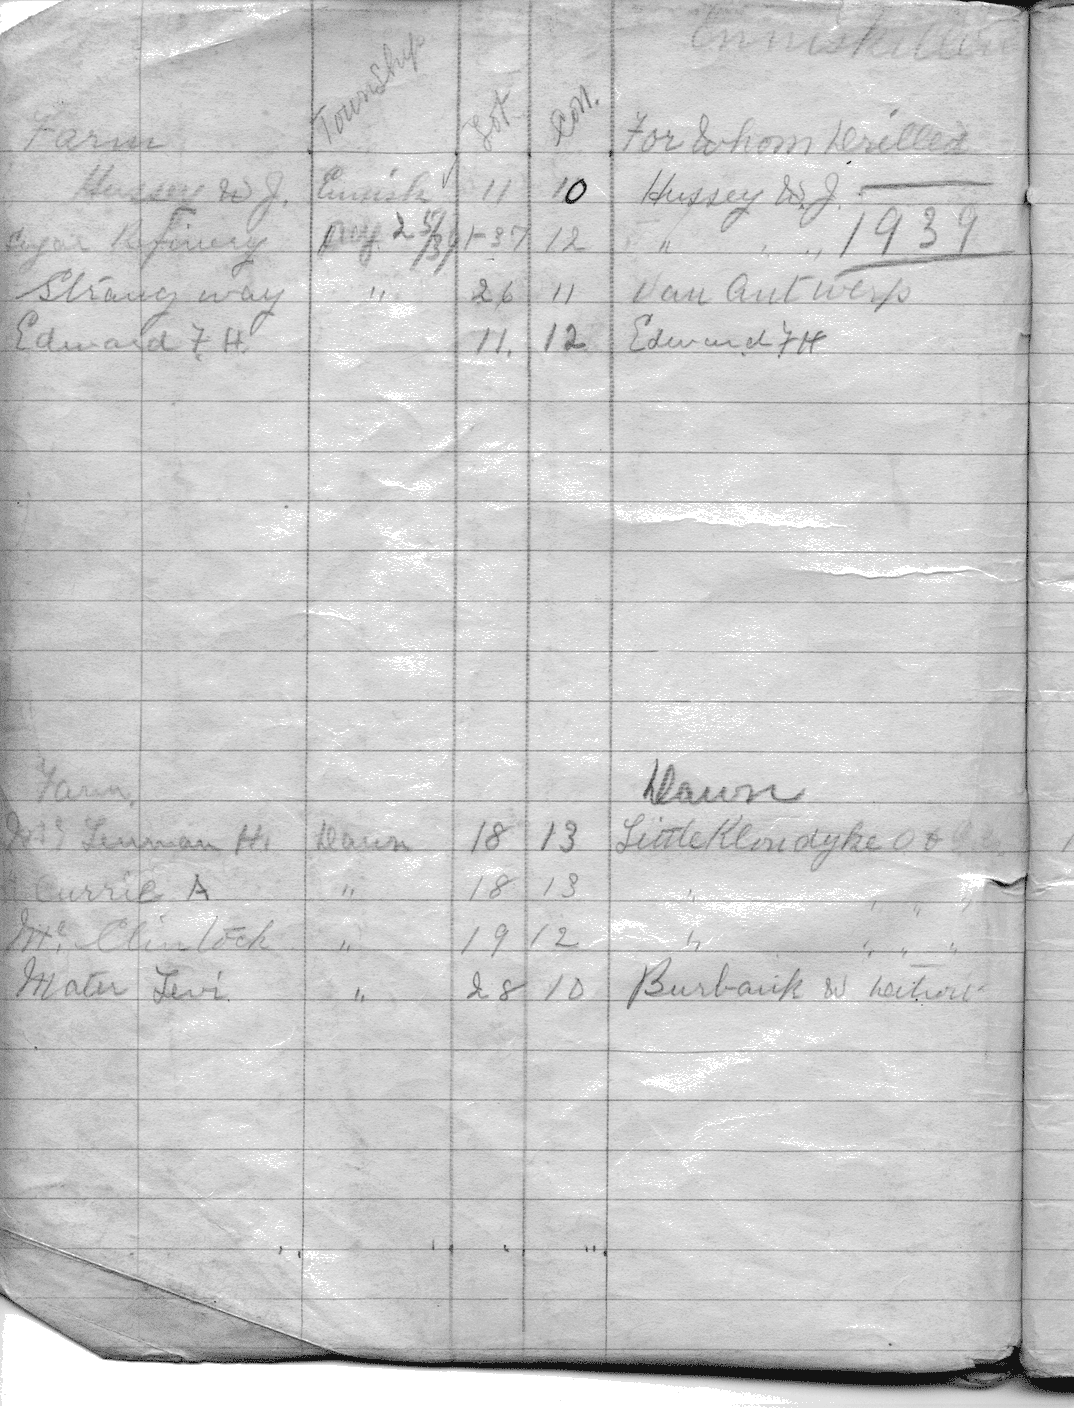 Enniskillen
Farm Township Lot Con. For Whom Drilled
Hussey W. J. Ennisk 11 10 Hussey W. J.
Refinery 12 " " " 1939
Strangway " 26 11 Van Antwerp
Edward F. H. 11. 12 Edward F H
Farm. Dawn
Lenman H. Dawn 18 13 Little Klondyke O &
" Currie A " 18 13 " " " "
Mc Clintock " 19 12 " " " "
Mater Levi " 28 10 Burbank W